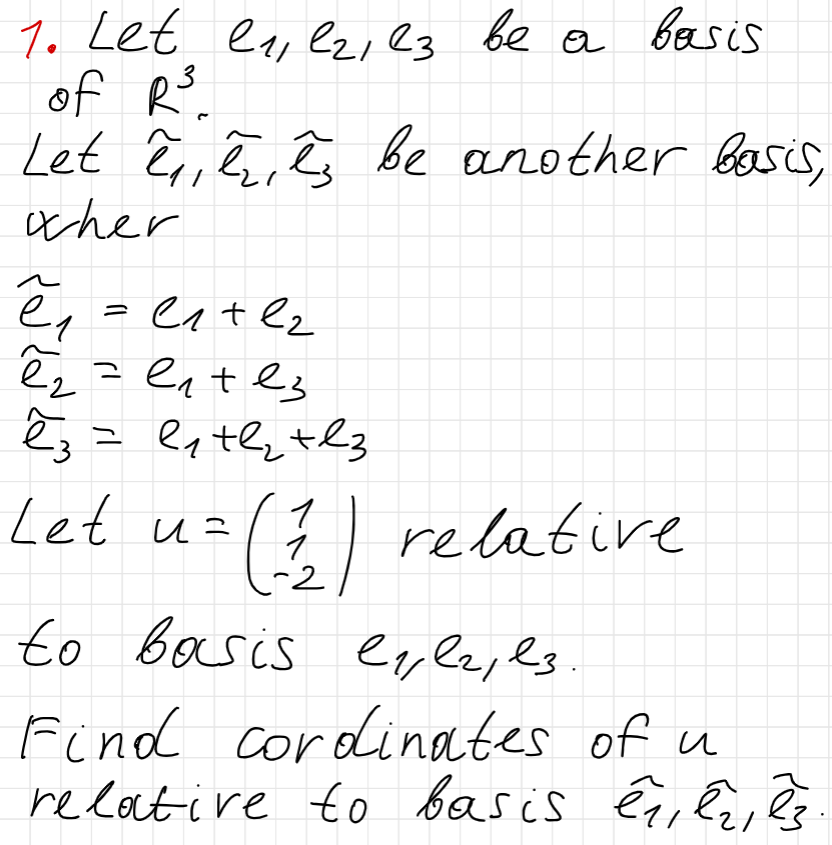 1. Let e1, e2, e3 be a basis
of R³.
Let ẽ1, ẽ2, ẽ3 be another basis,
wher
ẽ1 = e1 + e2
ẽ2 = e1 + e3
ẽ3 = e1+e2+e3
Let u = (1 1 -2) relative
to basis e1, e2, e3.
Find cordinates of u
relative to basis ẽ1, ẽ2, ẽ3.